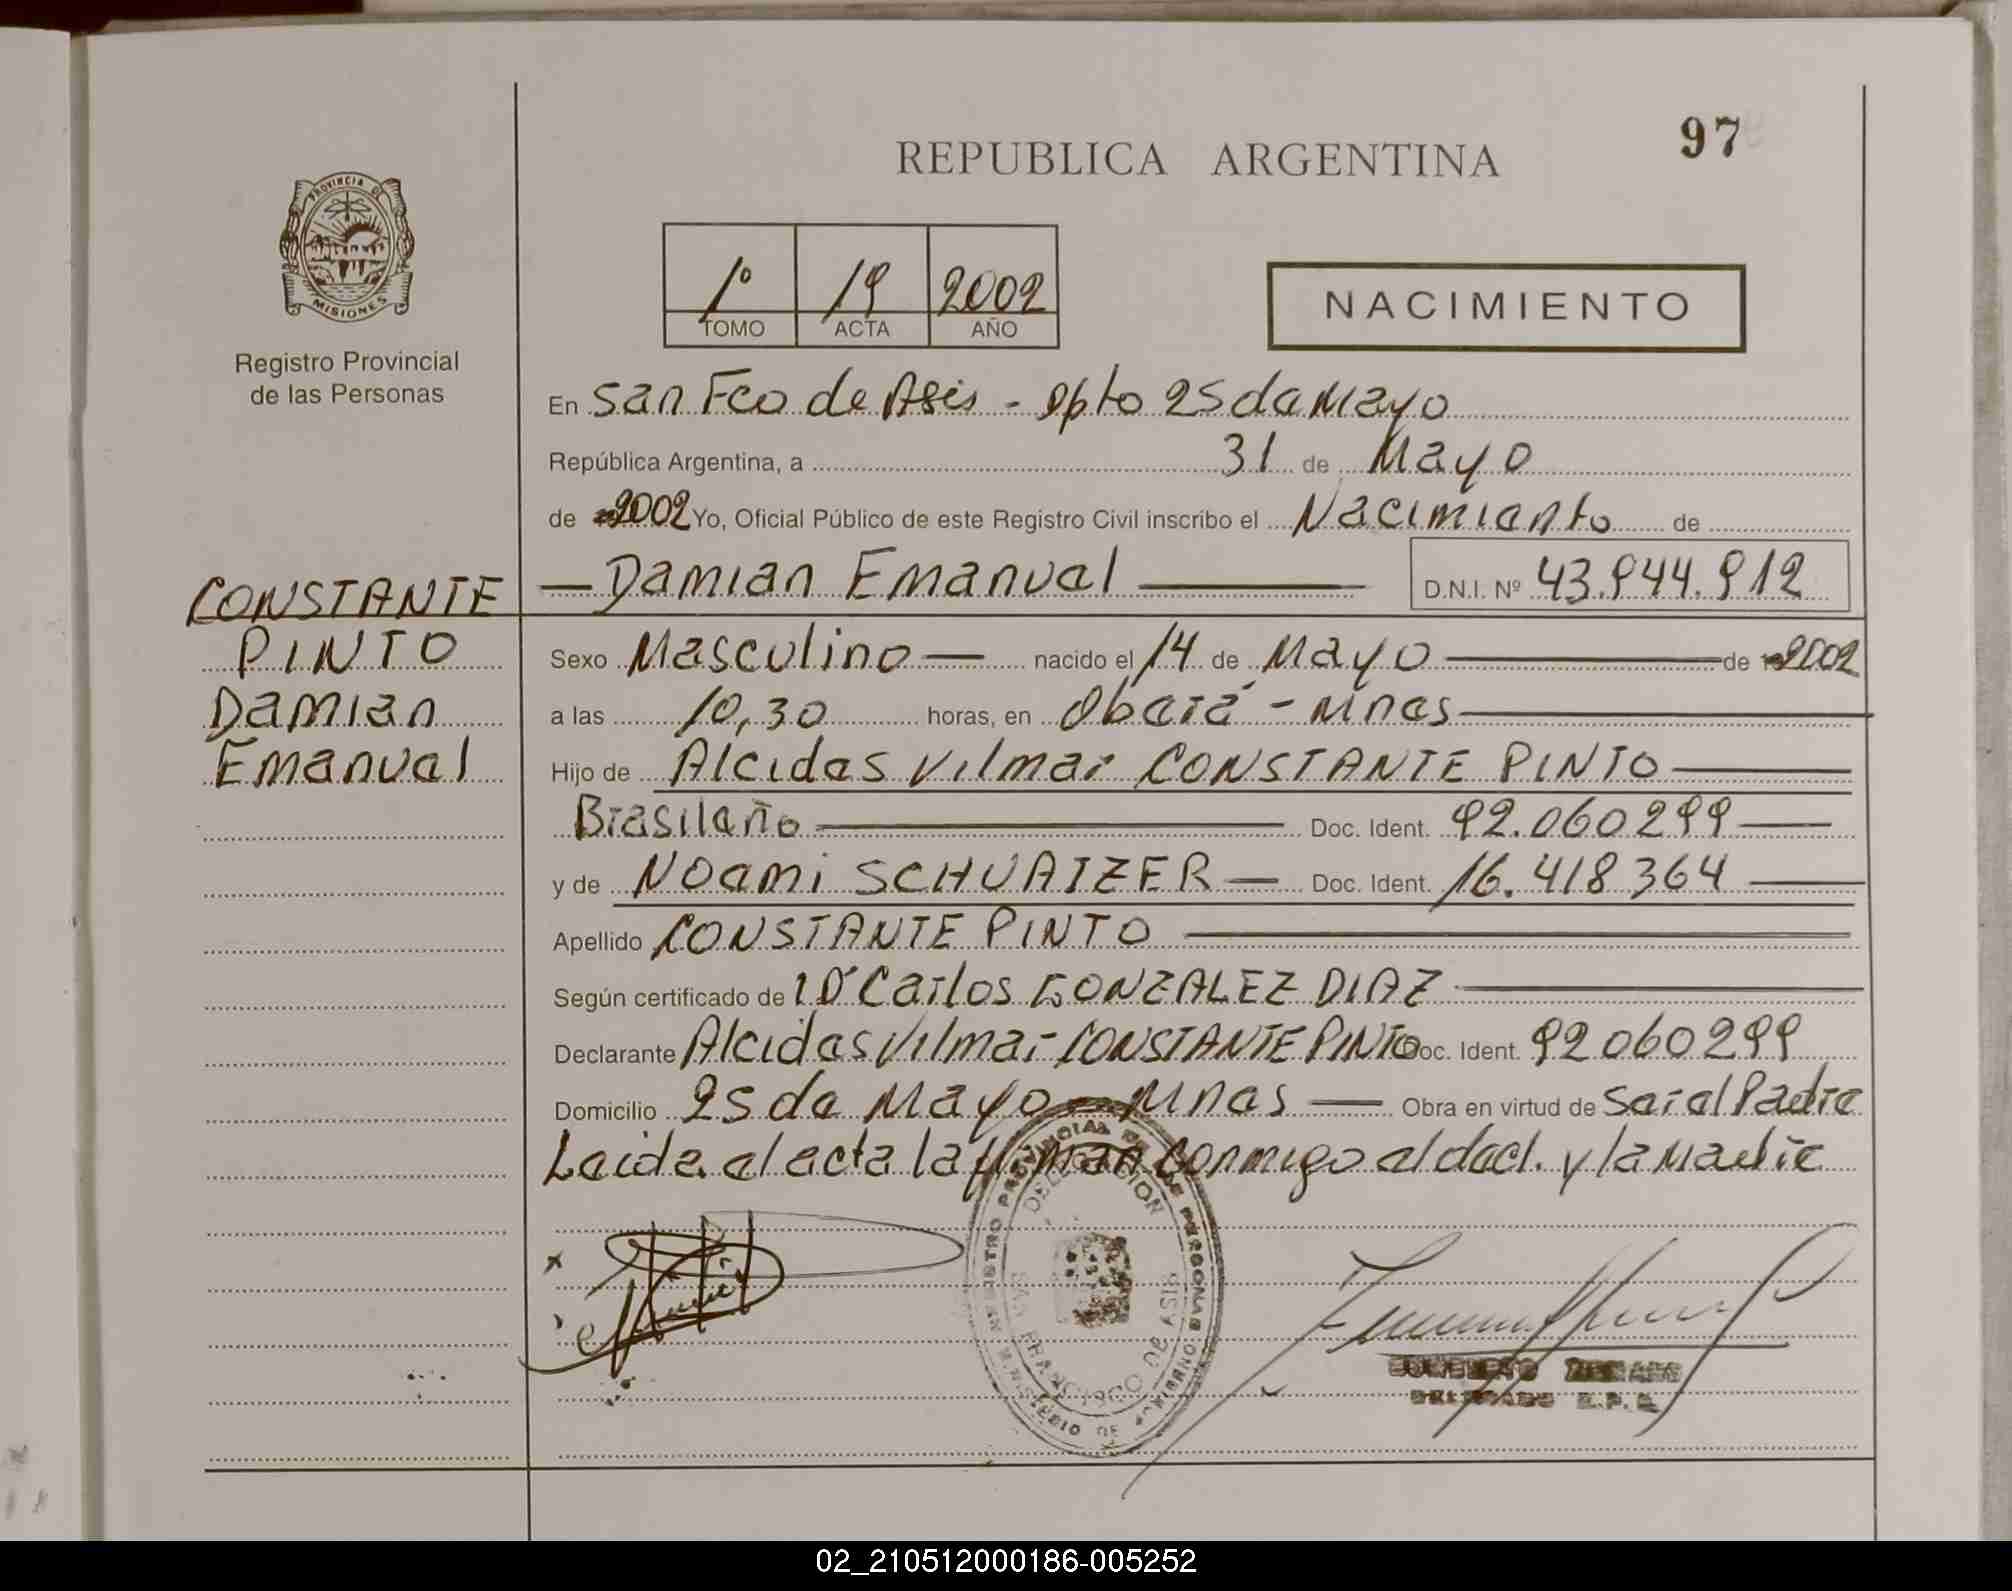 REPUBLICA ARGENTINA
97
PROVINCIA DE
MISIONES
Registro Provincial
de las Personas
1º 19 2002
TOMO ACTA AÑO
NACIMIENTO
En San Fco de Asis - Dpto 25 de Mayo
República Argentina, a 31 de Mayo
de 2002 Yo, Oficial Público de este Registro Civil inscribo el Nacimiento de
— Damian Emanuel — D.N.I. Nº 43.944.912
CONSTANTE
PINTO
Damian
Emanuel
Sexo Masculino — nacido el 14 de Mayo — de 2002
a las 10,30 horas, en Oberá - Mnes —
Hijo de Alcides Vilmar CONSTANTE PINTO —
Brasileño — Doc. Ident. 92.060299 —
y de Noemi SCHUAIZER — Doc. Ident. 16.418364 —
Apellido CONSTANTE PINTO —
Según certificado de Dr Carlos GONZALEZ DIAZ —
Declarante Alcides Vilmar CONSTANTE PINTO Doc. Ident. 92060299
Domicilio 25 de Mayo - Mnes — Obra en virtud de Ser el Padre
Leida el acta la firman conmigo el decl. y la Madre
REGISTRO PROVINCIAL DE PERSONAS
MINISTERIO DE GOBIERNO
DELEGACION
SAN FRANCISCO DE ASIS
DELEGADO R.P.P.
02_210512000186-005252